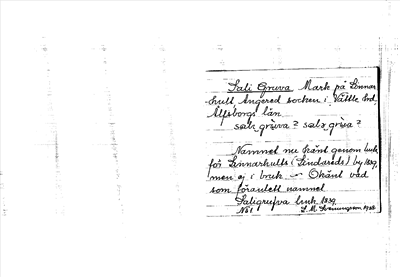 Sali Gruva Mark på Linnar-
hult Angered socken i Vättle hd.
Älfsborgs län.
Namnet nu känt genom bruk
för Linnarhults (Lindareds) by 1839,
men ej i bruk — Okänt vad
som föranlett namnet
Saligrufva bruk 1839
No 1 S. M. 1928